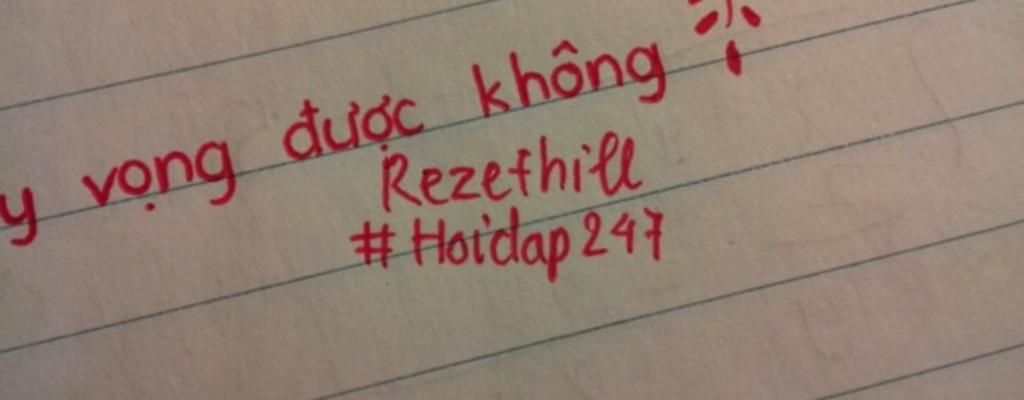 y vọng được không
Rezethill
#Hoidap247